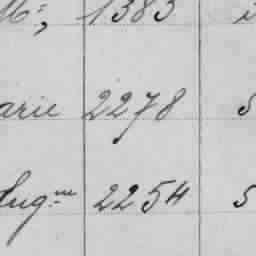 M^e, 1383
arie 2278 5
Aug^ne 2254 5